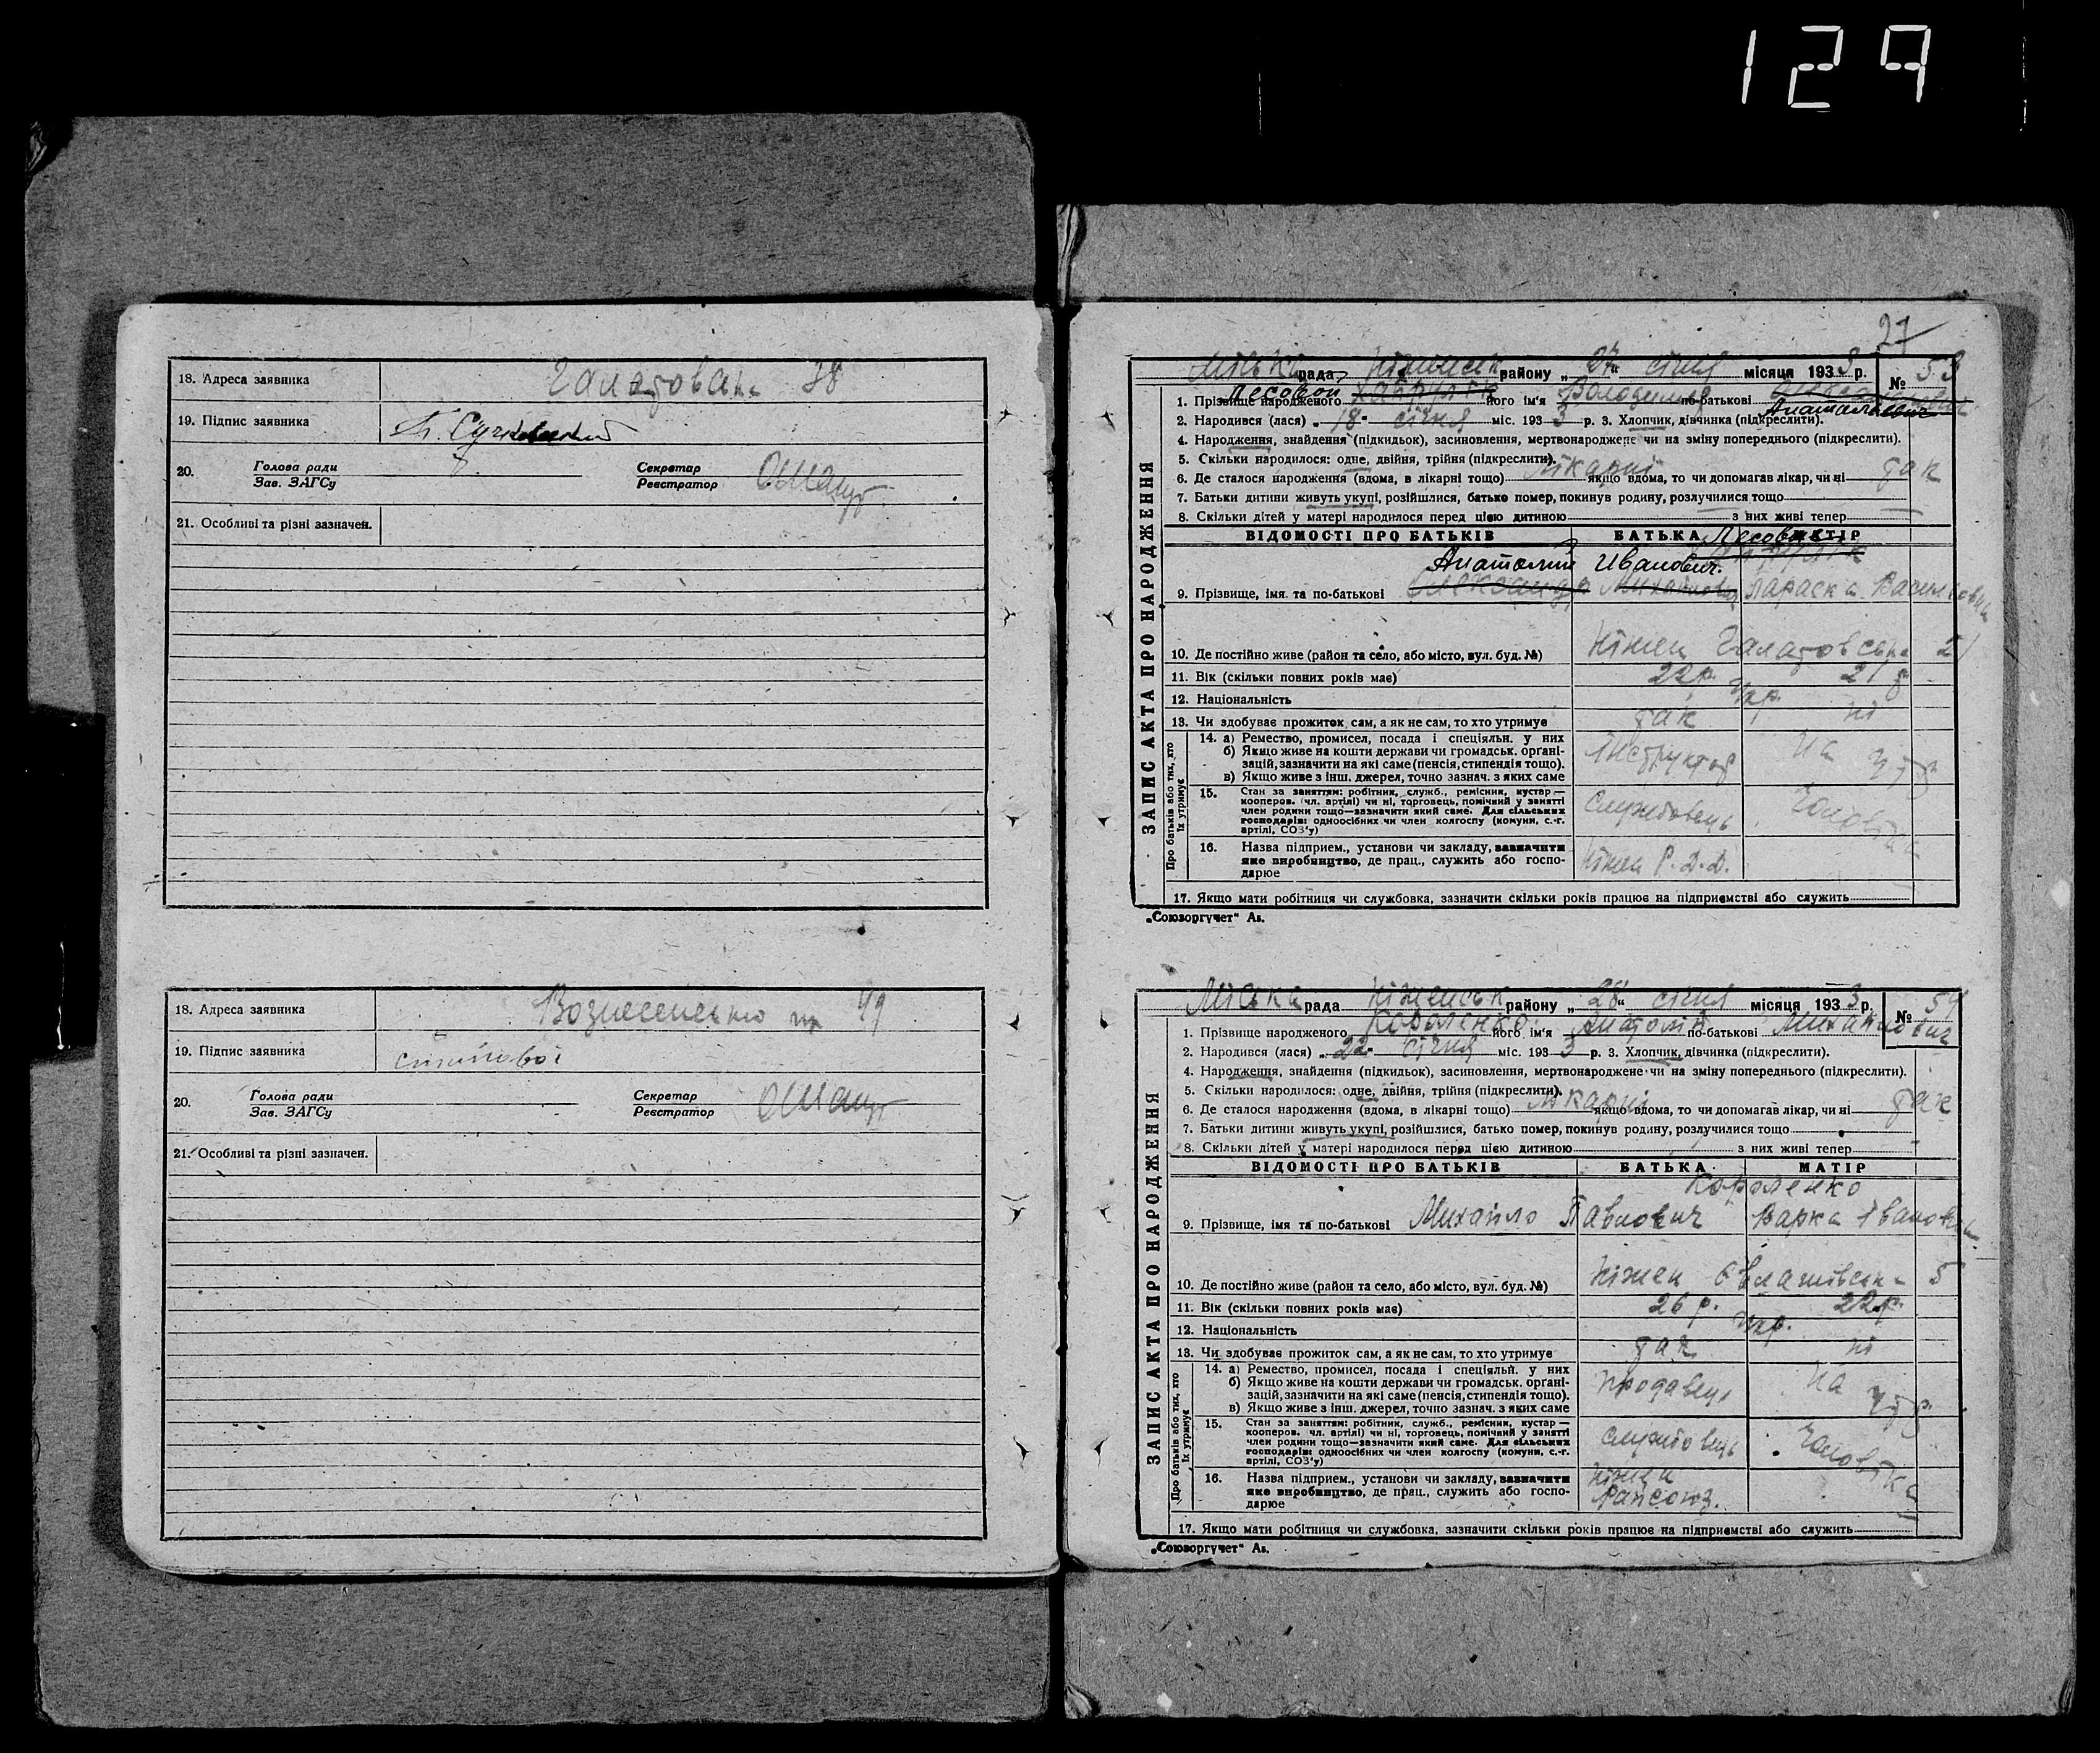 129
18. Адреса заявника
19. Підпис заявника
20. Голова ради
Зав. ЗАГСу
Секретар
Реєстратор
21. Особливі та різні зазначен.
18. Адреса заявника Вознесенсько 49
19. Підпис заявника
20. Голова ради
Зав. ЗАГСу
Секретар
Реєстратор
21. Особливі та різні зазначен.
27
ЗАПИС АКТА ПРО НАРОДЖЕННЯ
Міська рада Ніженськ району „27“ січня місяця 1933 р. № 53
Лесовой
1. Прізвище народженого його ім'я Володимир по-батькові
Анатольевич
2. Народився (лася) „18“ січня міс. 1933 р. 3. Хлопчик, дівчинка (підкреслити).
4. Народження, знайдення (підкидьок), засиновлення, мертвонароджене чи на зміну попереднього (підкреслити).
5. Скільки народилося: одне, двійня, трійня (підкреслити).
6. Де сталося народження (вдома, в лікарні тощо) лікарні якщо вдома, то чи допомагав лікар, чи ні так
7. Батьки дитини живуть укупі, розійшлися, батько помер, покинув родину, розлучилися тощо
8. Скільки дітей у матері народилося перед цією дитиною з них живі тепер
ВІДОМОСТІ ПРО БАТЬКІВ БАТЬКА МАТІР
Анатолий Иванович.
9. Прізвище, імя. та по-батькові Александр Михайлович Параска Васильовна
10. Де постійно живе (район та село, або місто, вул. буд. №) Ніжен Галатовська 21
11. Вік (скільки повних років має) 22р. 21 р
12. Національність Укр.
13. Чи здобуває прожиток сам, а як не сам, то хто утримує так ні
Про батьків або тих, хто їх утримує
14. а) Ремество, промисел, посада і спеціяльн. у них
б) Якщо живе на кошти держави чи громадськ. органі-
зацій, зазначити на які саме (пенсія, стипендія тощо).
в) Якщо живе з інш. джерел, точно зазнач. з яких саме
Інструктор На утр
15. Стан за заняттям: робітник, служб., ремісник, кустар—
кооперов. (чл. артілі) чи ні, торговець, помічний у занятті
член родини тощо—зазначити який саме. Для сільських
господарів: одноосібних чи член колгоспу (комуни, с.-г.
артілі, СОЗ'у)
Службовець Чоловіка
16. Назва підприєм., установи чи закладу, зазначити
яке виробництво, де прац., служить або госпо-
дарює
Ніжен Р.Д.Д.
17. Якщо мати робітниця чи службовка, зазначити скільки років працює на підприємстві або служить
„Союзоргучет“ Ав.
ЗАПИС АКТА ПРО НАРОДЖЕННЯ
Міська рада Ніженськ району „28“ січня місяця 1933 р. № 54
1. Прізвище народженого Короленко його ім'я Анатолій по-батькові Михайлович
2. Народився (лася) „22“ січня міс. 1933 р. 3. Хлопчик, дівчинка (підкреслити).
4. Народження, знайдення (підкидьок), засиновлення, мертвонароджене чи на зміну попереднього (підкреслити).
5. Скільки народилося: одне, двійня, трійня (підкреслити).
6. Де сталося народження (вдома, в лікарні тощо) лікарні якщо вдома, то чи допомагав лікар, чи ні так
7. Батьки дитини живуть укупі, розійшлися, батько помер, покинув родину, розлучилися тощо
8. Скільки дітей у матері народилося перед цією дитиною з них живі тепер
ВІДОМОСТІ ПРО БАТЬКІВ БАТЬКА МАТІР
Короленко
9. Прізвище, імя та по-батькові Михайло Павлович Варка Івановна
10. Де постійно живе (район та село, або місто, вул. буд. №) Ніжен Євлашівська 5
11. Вік (скільки повних років має) 26 р. 22р.
12. Національність Укр.
13. Чи здобуває прожиток сам, а як не сам, то хто утримує так ні
Про батьків або тих, хто їх утримує
14. а) Ремество, промисел, посада і спеціяльн. у них
б) Якщо живе на кошти держави чи громадськ. органі-
зацій, зазначити на які саме (пенсія, стипендія тощо).
в) Якщо живе з інш. джерел, точно зазнач. з яких саме
Продавець На утр.
15. Стан за заняттям: робітник, служб., ремісник, кустар—
кооперов. чл. артілі) чи ні, торговець, помічний у занятті
член родини тощо—зазначити який саме. Для сільських
господарів: одноосібних чи член колгоспу (комуни, с.-г.
артілі, СОЗ'у)
Службовець Чоловіка
16. Назва підприєм., установи чи закладу, зазначити
яке виробництво, де прац., служить або госпо-
дарює
Ніжен
Райсоюз.
17. Якщо мати робітниця чи службовка, зазначити скільки років працює на підприємстві або служить
„Союзоргучет“ Ав.